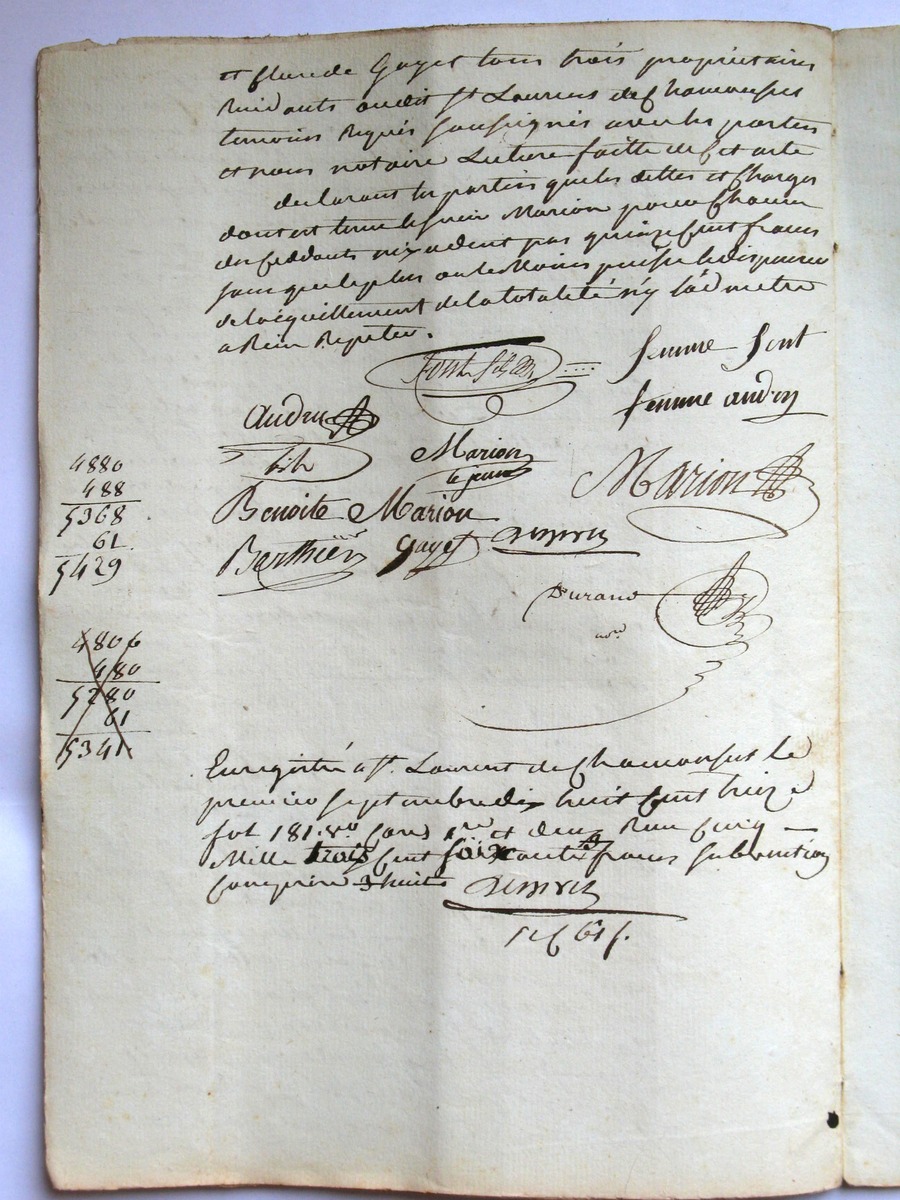 et Claude Gayet tous trois propriétaires
Residants audit St Laurent de Chamousset
temoins Requis soussignés avec les parties
et nous notaire Lecture faitte de Cet acte
declarant les parties que les dettes et Charges
dont est tenu le Marion pour Chacun
des Ceddants n'exedent pas quinze Cent francs
sans que le plus ou le Moins puisse le dispenser
de la totalité n'y l'admettre
a Rien Repeter.
Font fils
femme Font
Audin
femme audin
fils
Marion
le jeune
Marion
Benoite Marion
Barthien
Gayet
Durand
nore
4880
488
5368
61
5429
4806
480
5280
61
5341
Enregistré a St. Laurent de Chamousset le
premier septembre dix huit Cent treize
fol 181 Cases 1re et deux Reçu Cinq
Mille Cent francs subvention
Comprise huit
61 f.